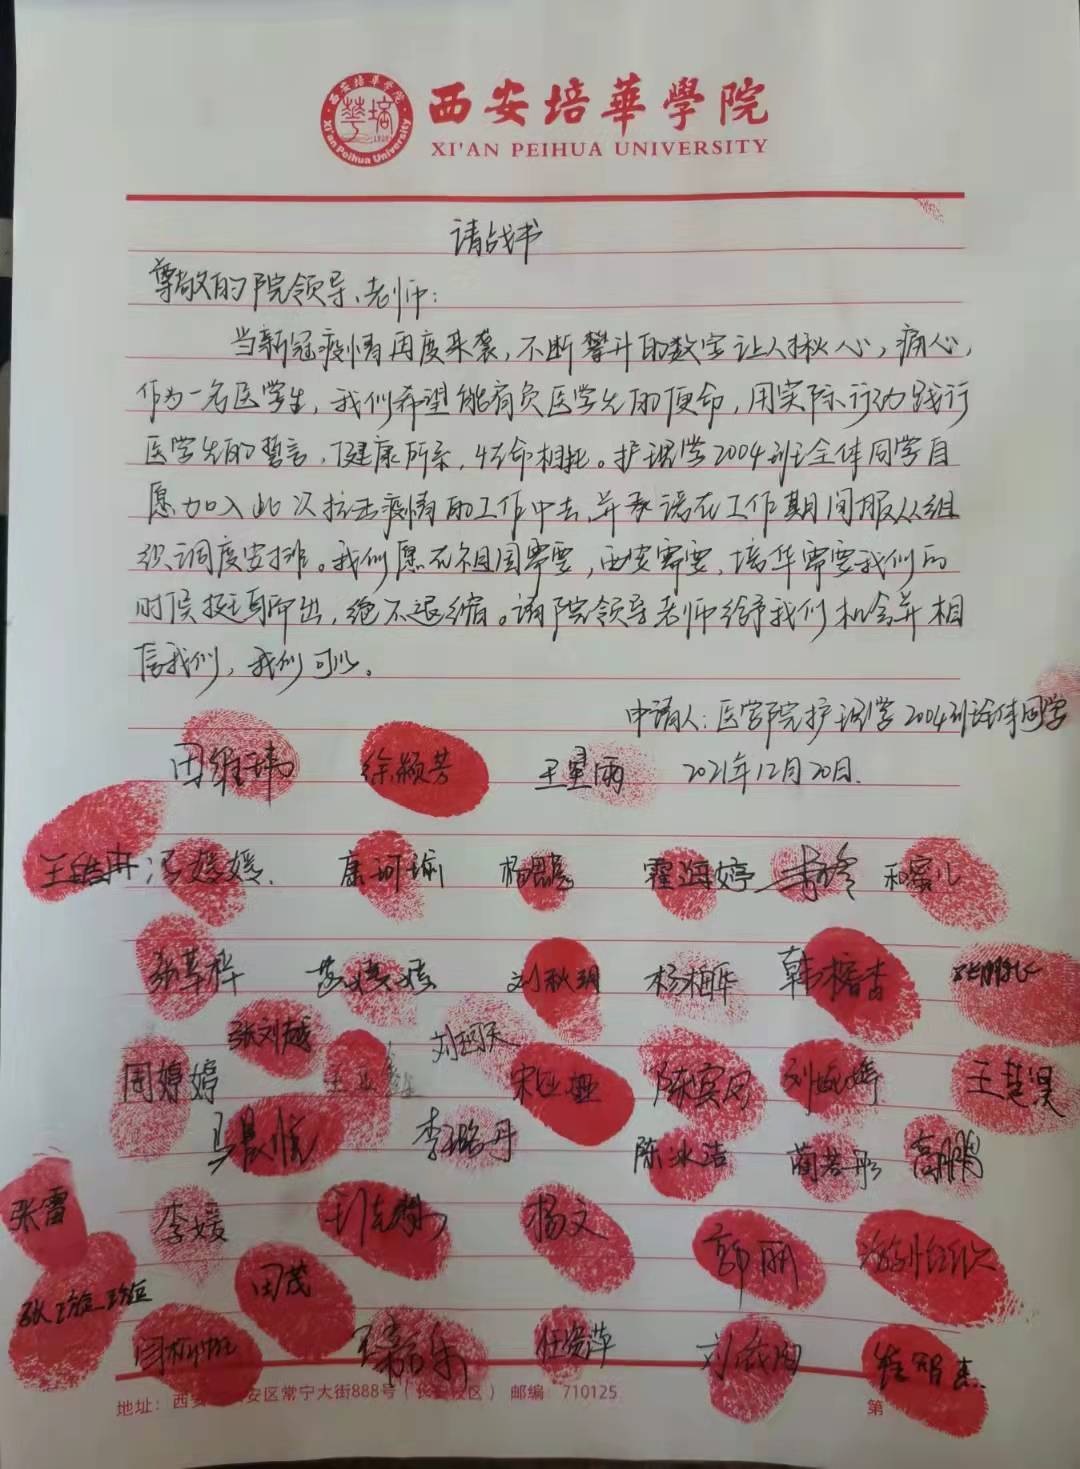 西安培華學院
XI'AN PEIHUA UNIVERSITY
西安培華學院
Xi'an Peihua University
请战书
尊敬的院领导、老师：
当新冠疫情再度来袭，不断攀升的数字让人揪心，痛心，
作为一名医学生，我们希望能肩负医学生的使命，用实际行动践行
医学生的誓言，健康所系，性命相托。护理学2004班全体同学自
愿加入此次抗击疫情的工作中去，并承诺在工作期间服从组
织调度安排。我们愿在祖国需要，西安需要，培华需要我们的
时候挺身而出，绝不退缩。请院领导老师给予我们机会并相
信我们，我们可以。
申请人：医学院护理学2004班全体同学
田维玮 徐颖芳 王星雨 2021年12月20日.
冯媛媛. 康珂瑜 霍海婷 和蜜儿
刘秋玥 杨柏华 韩榕杏
张刘越
周婷婷 陈宾凤 王楚淏
马晨悦 李璐丹 陈冰洁 蔺若彤 高鹏
张雷 李媛 杨文 郭丽
田茂
任媛萍 崔智杰.
地址：西安 安区常宁大街888号（长安校区） 邮编 710125
第